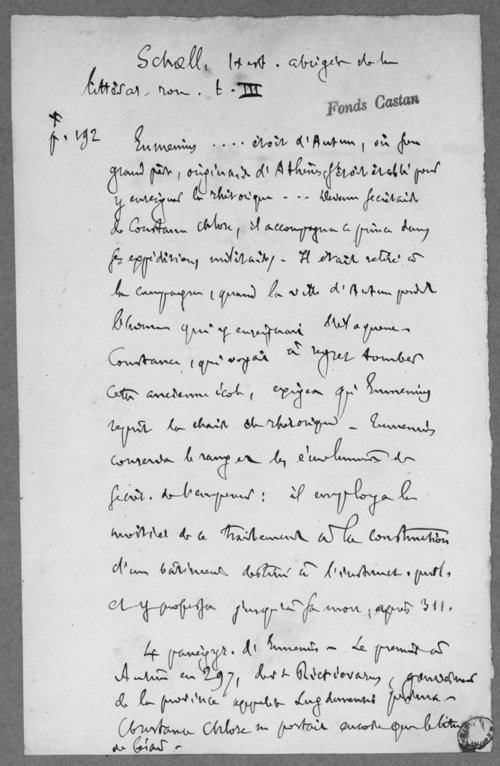 Schœll, hist. abrégée de la
littérat. rom. t. III
Fonds Castan
p. 192
Eumenius .... étoit d'Autun, où son
grand père, originaire d'Athènes, s'étoit établi pour
y enseigner la rhétorique ... Devenu secrétaire
de Constance Chlore, il accompagna ce prince dans
ses expéditions militaires. Il était retiré à
la campagne, quand la ville d'Autun perdit
l'homme qui y enseignait l'éloquence
Constance, qui voyait à regret tomber
cette ancienne école, exigea qu'Eumenius
reprît la chaire de rhétorique. Eumenius
conserva le rang et les émoluments de
secrét. de l'empereur : il employa la
moitié de ce traitement à la construction
d'un bâtiment destiné à l'instruct. publ.
et y professa jusqu'à sa mort, après 311.
4 panégyr. d'Eumenius. Le premier à
Autun en 297, devant Rictiovarus, gouverneur
de la province appelée Lugdunensis prima.
Constance Chlore ne portait encore que le titre
de César.